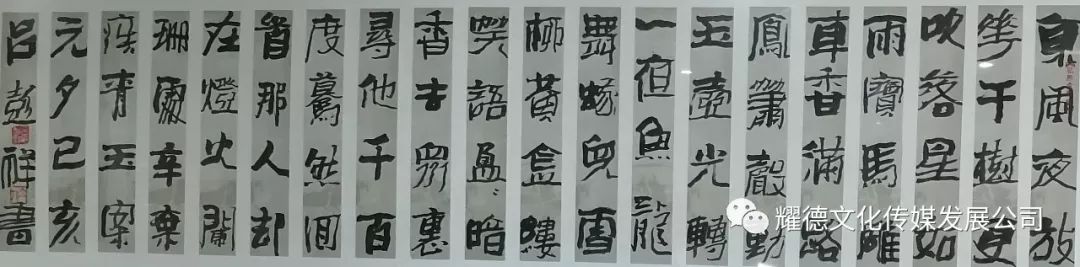 東風夜放
華千樹更
吹落星如
雨寶馬雕
車香滿路
鳳簫聲動
玉壺光轉
一夜魚龍
舞蛾兒雪
柳黃金縷
笑語盈〻暗
香去眾裏
尋他千百
度驀然回
首那人却
在燈火闌
珊處辛棄
疾青玉案
元夕己亥
呂彭祥書
耀德文化传媒发展公司